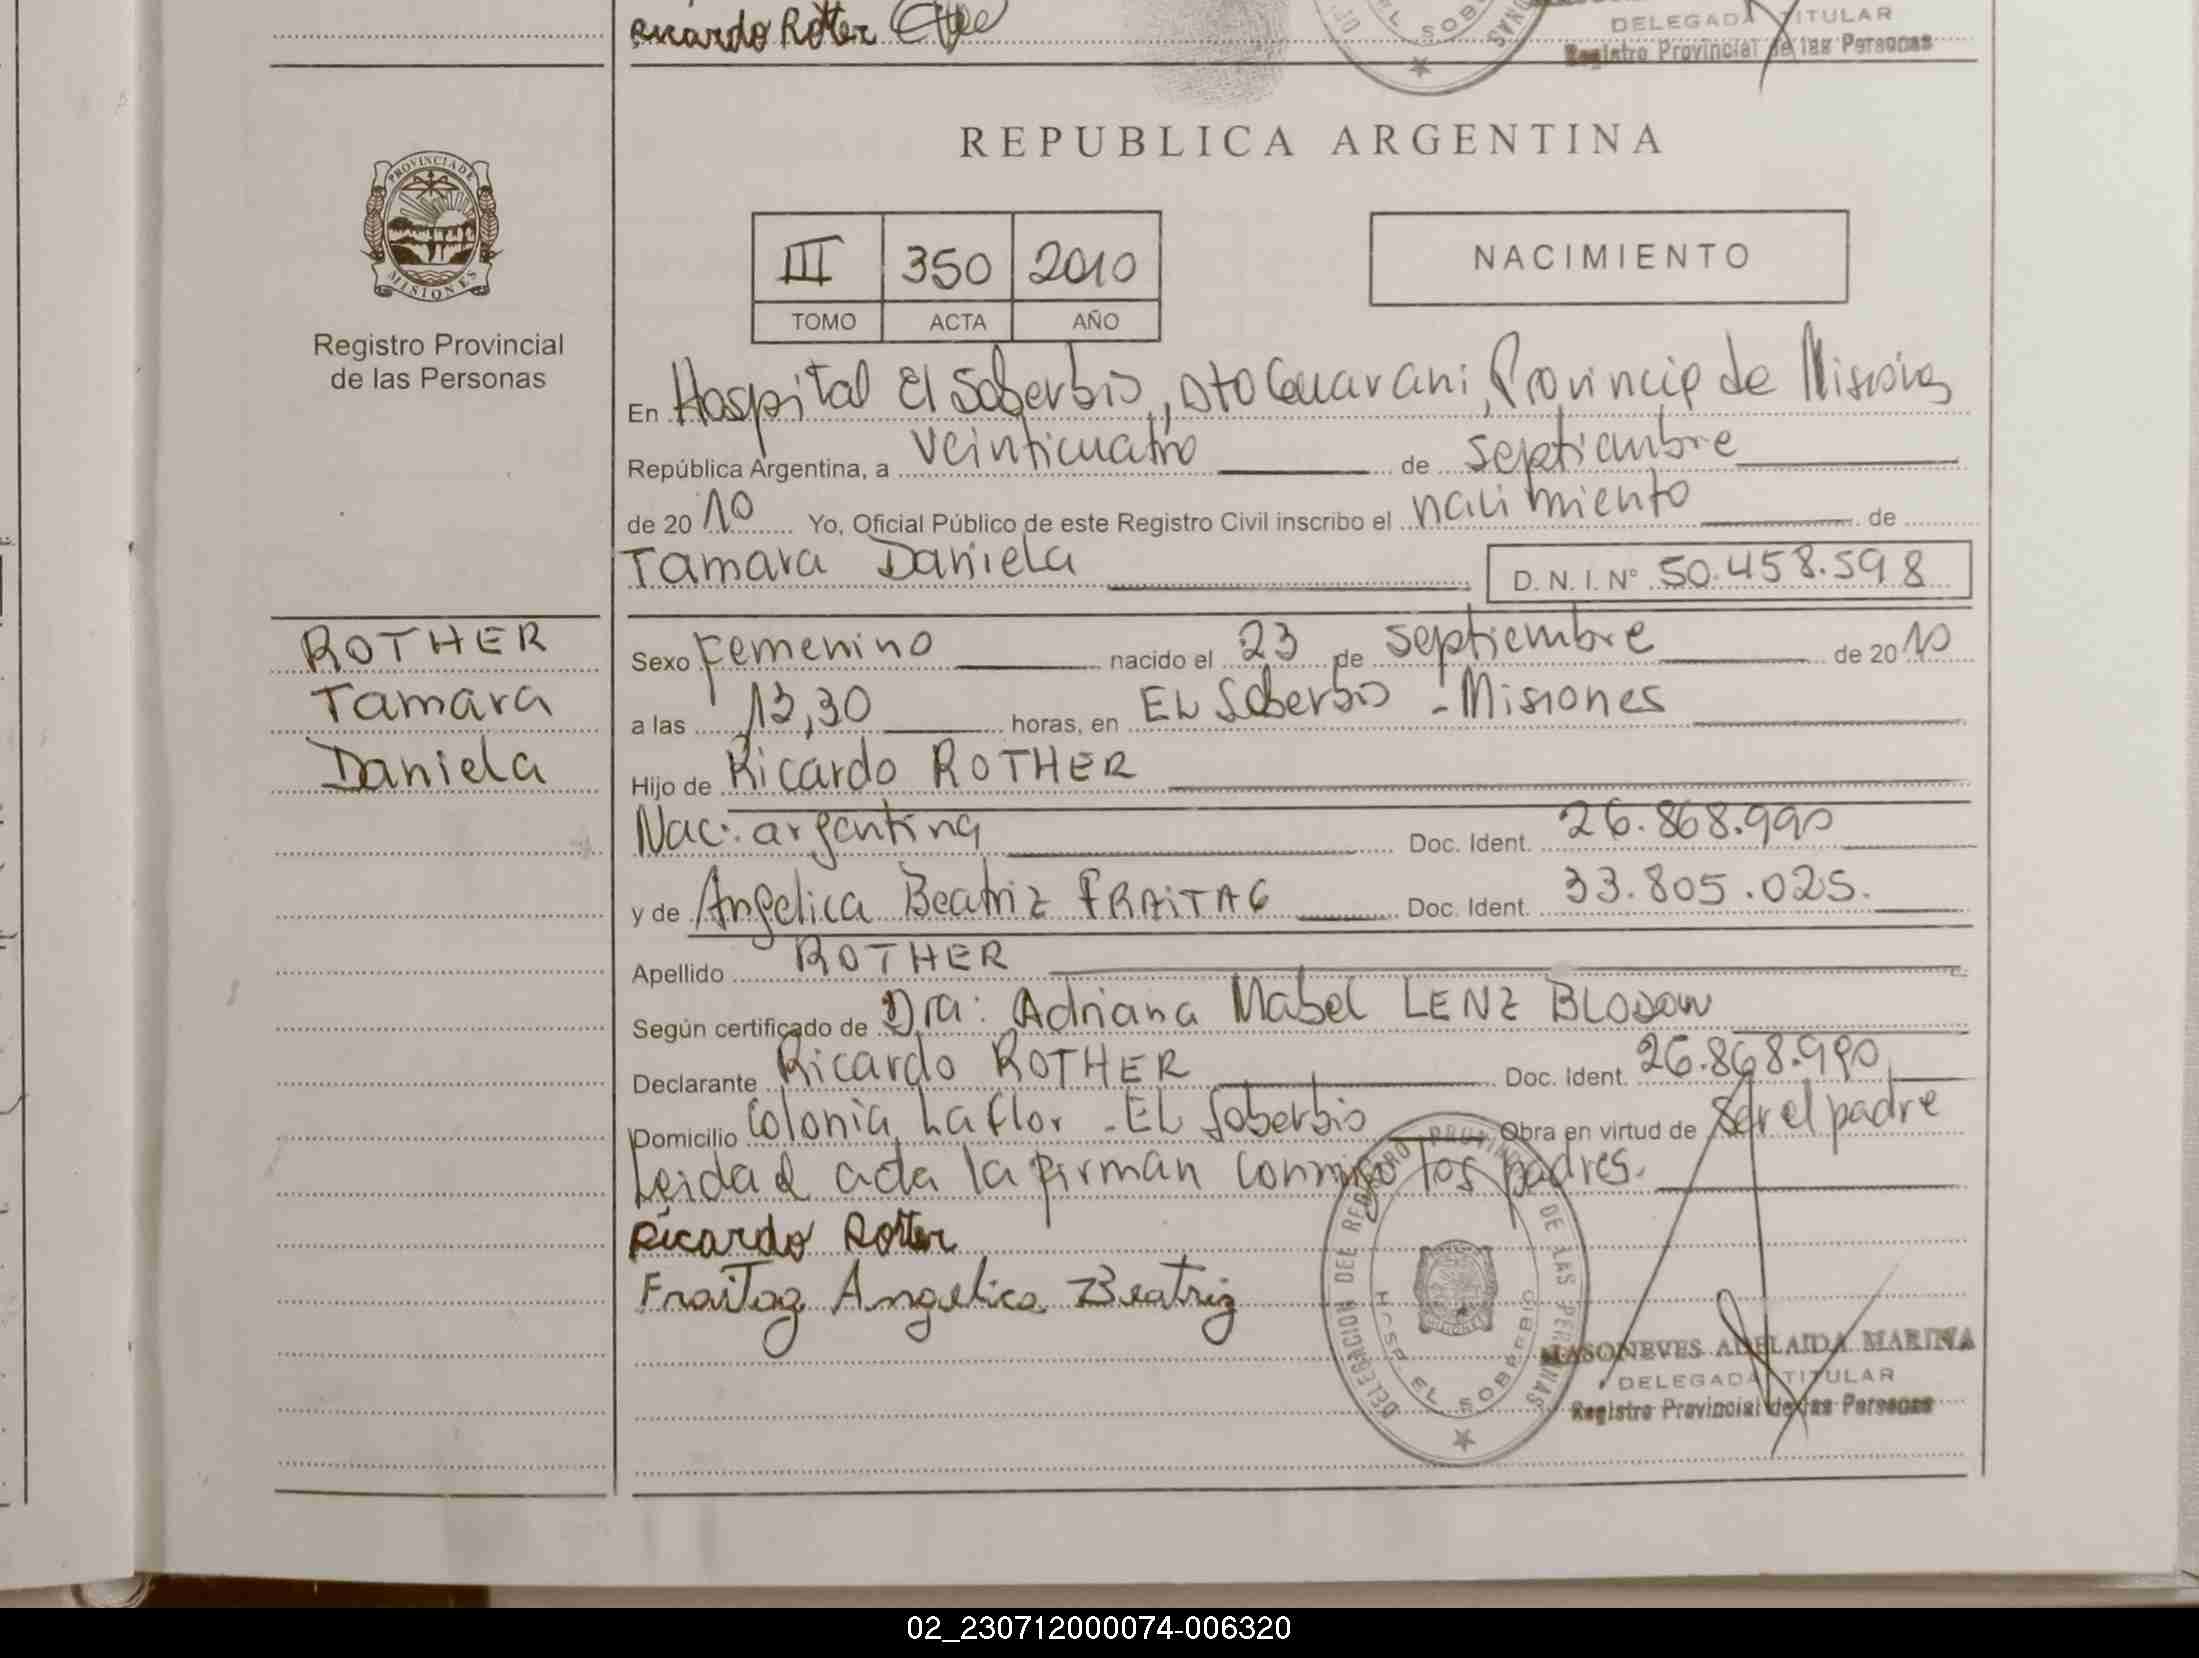 Ricardo Rotter
DELEGADA TITULAR
Registro Provincial de las Personas
EL SOB
REPUBLICA ARGENTINA
PROVINCIA DE
MISIONES
Registro Provincial
de las Personas
III 350 2010
TOMO ACTA AÑO
NACIMIENTO
En Hospital El Soberbio, Dto Guarani, Provincia de Misiones
República Argentina, a veinticuatro de septiembre
de 2010 Yo, Oficial Público de este Registro Civil inscribo el nacimiento de
Tamara Daniela D.N.I.Nº 50.458.598
ROTHER
Tamara
Daniela
Sexo Femenino nacido el 23 de septiembre de 2010
a las 13,30 horas, en EL Soberbio - Misiones
Hijo de Ricardo ROTHER
Nac: argentina Doc. Ident. 26.868.990
y de Angelica Beatriz FRAITAG Doc. Ident. 33.805.025.
Apellido ROTHER
Según certificado de Dra: Adriana Mabel LENZ BLOSOW
Declarante Ricardo ROTHER Doc. Ident. 26.868.990
Domicilio Colonia La Flor - EL Soberbio Obra en virtud de Ser el padre
Leida el acta la firman conmigo los padres.
Ricardo Rotter
Fraitag Angelica Beatriz
DELEGACION DEL REGISTRO PROVINCIAL DE LAS PERSONAS
HOSP. EL SOBERBIO
MASONEVES ADELAIDA MARINA
DELEGADA TITULAR
Registro Provincial de las Personas
02_230712000074-006320